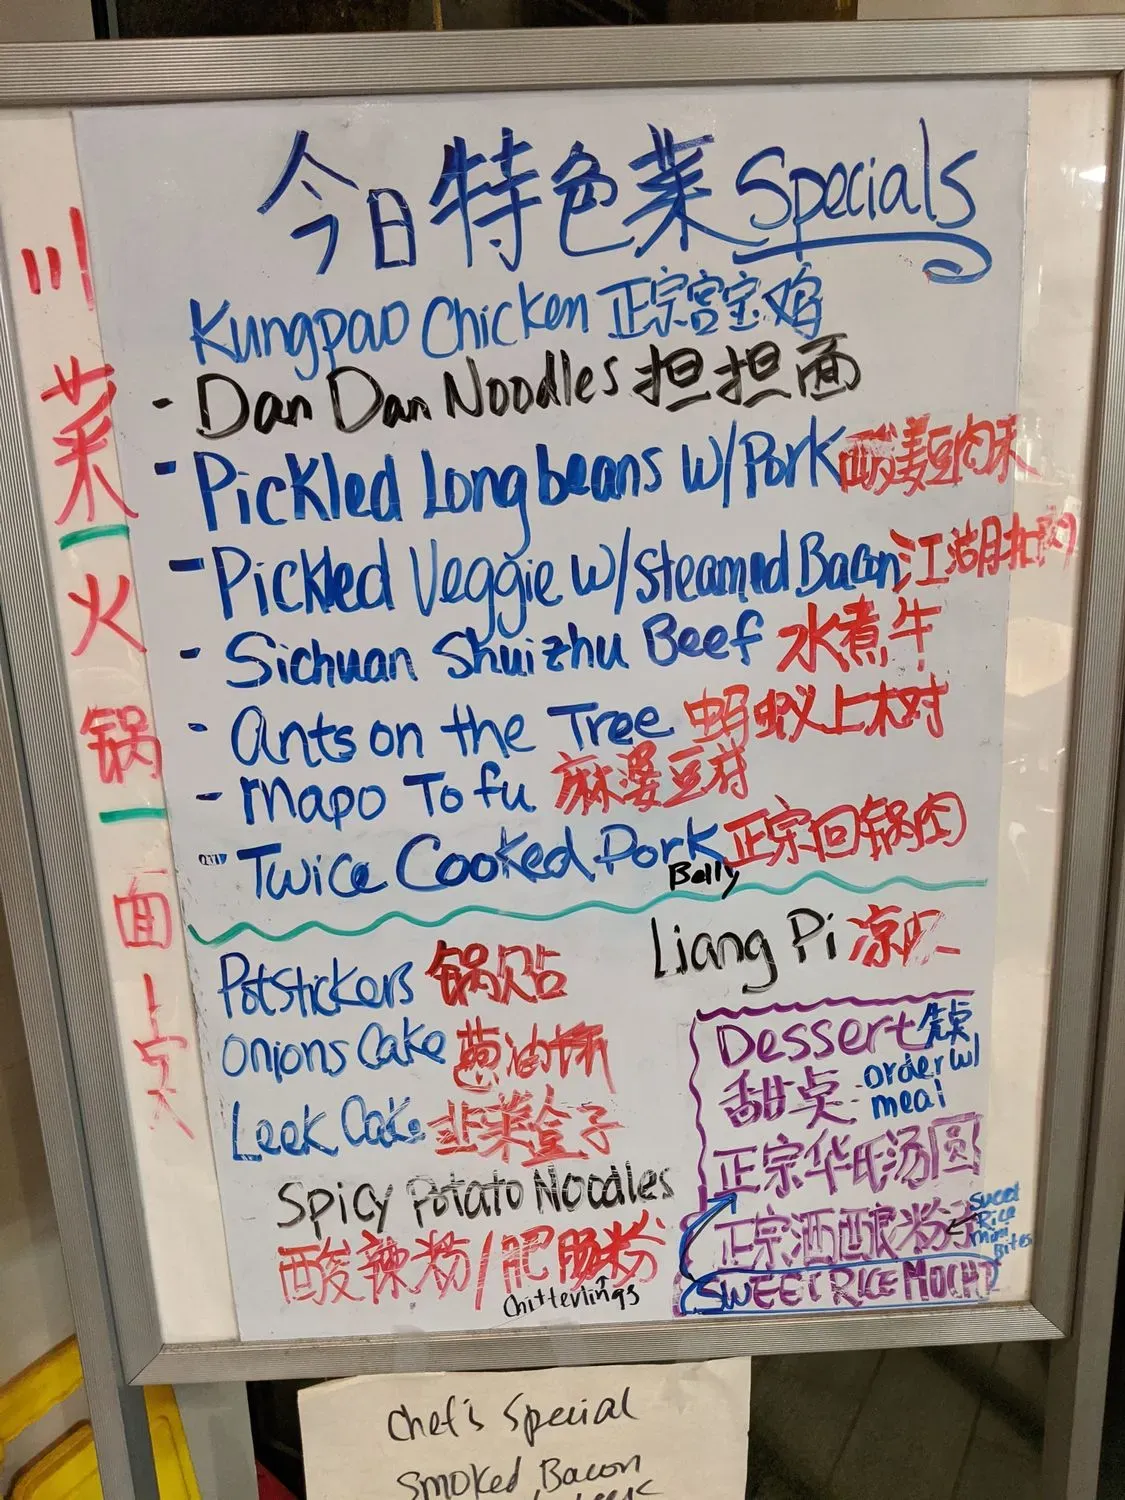 今日特色菜 Specials
Kungpao Chicken 正宗宫宝鸡
- Dan Dan Noodles 担担面
- Pickled Longbeans w/Pork 酸姜豆肉末
- Pickled Veggie w/steamed Bacon 江湖
- Sichuan Shuizhu Beef 水煮牛
- Ants on the Tree 蚂蚁上树
- Mapo Tofu 麻婆豆腐
Twice Cooked Pork 正宗回锅肉
Belly
川菜-火锅-面
Potstickers 锅贴
Onions Cake 葱油饼
Leek Cake 韭菜盒子
Spicy Potato Noodles
酸辣粉/肥肠粉
Chitterlings
Liang Pi 凉
Dessert
甜点 - order w/
meal
正宗 汤圆
正宗酒酿粉子
Sweet
Rice
Mini
Bites
SWEET RICE MOCHI
Chef's Special
Smoked Bacon